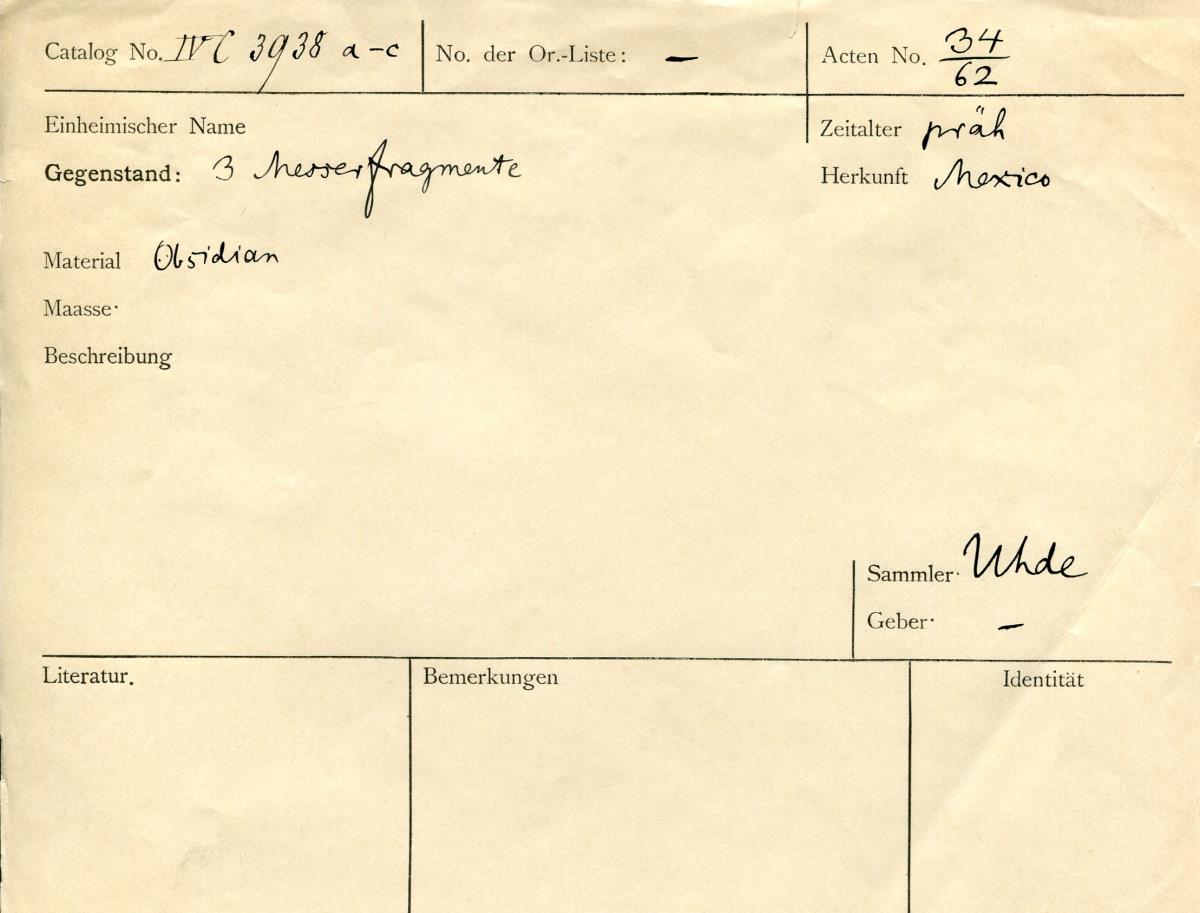 Catalog No. IV C 3938 a-c No. der Or.-Liste: – Acten No. 34/62
Einheimischer Name
Zeitalter präh
Gegenstand: 3 Messerfragmente
Herkunft Mexico
Material Obsidian
Maasse·
Beschreibung
Sammler· Uhde
Geber· –
Literatur. Bemerkungen Identität